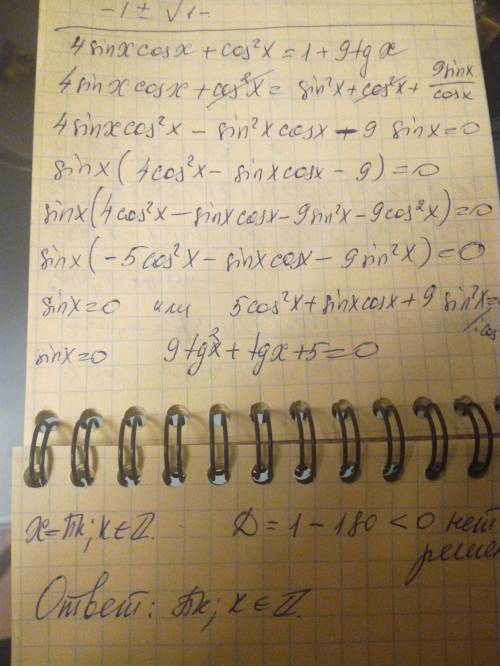 -1 ± √1-
4sinxcosx + cos²x = 1 + 9tgx
4sinxcosx + cos²x = sin²x + cos²x + 9sinx/cosx
4sinxcos²x - sin²xcosx - 9 sinx = 0
sinx(4cos²x - sinxcosx - 9) = 0
sinx(4cos²x - sinxcosx - 9sin²x - 9cos²x) = 0
sinx(-5cos²x - sinxcosx - 9sin²x) = 0
sinx = 0 или 5cos²x + sinxcosx + 9 sin²x =
sinx = 0 9tg²x + tgx + 5 = 0
x = πk; k ∈ ℤ. D = 1 - 180 < 0 нет
Ответ: πk; k ∈ ℤ.